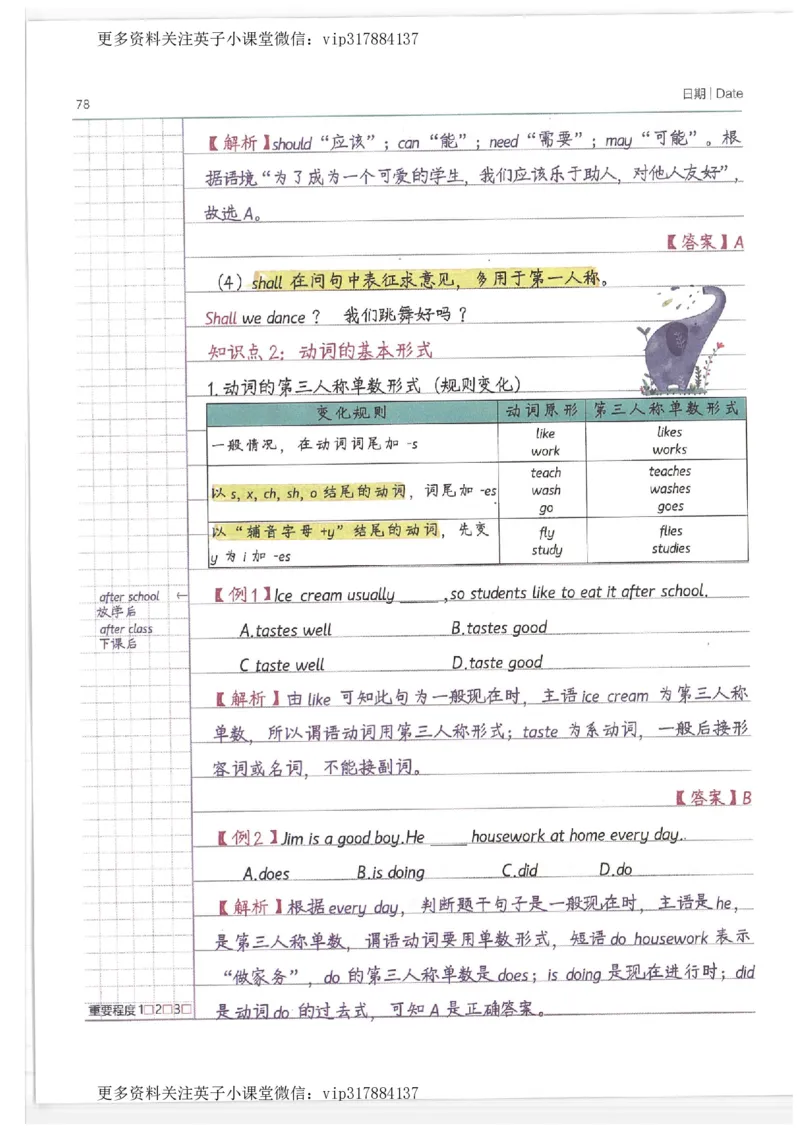 更多资料关注英子小课堂微信：vip317884137
78
日期 | Date
【解析】should“应该”；can“能”；need“需要”；may“可能”。根
据语境“为了成为一个可爱的学生，我们应该乐于助人，对他人友好”，
故选A。
【答案】A
（4）shall 在问句中表征求意见，多用于第一人称。
Shall we dance？ 我们跳舞好吗？
知识点2：动词的基本形式
1.动词的第三人称单数形式（规则变化）
变化规则 动词原形 第三人称单数形式
一般情况，在动词词尾加 -s
like likes
work works
以 s, x, ch, sh, o 结尾的动词，词尾加 -es
teach teaches
wash washes
go goes
以“辅音字母+y”结尾的动词，先变
y 为 i 加 -es
fly flies
study studies
after school ←
放学后
after class
下课后
【例1】Ice cream usually _____,so students like to eat it after school.
A.tastes well B.tastes good
C taste well D.taste good
【解析】由 like 可知此句为一般现在时，主语 ice cream 为第三人称
单数，所以谓语动词用第三人称形式；taste 为系动词，一般后接形
容词或名词，不能接副词。
【答案】B
【例2】Jim is a good boy.He ____ housework at home every day.
A.does B.is doing C.did D.do
【解析】根据 every day，判断题干句子是一般现在时，主语是 he，
是第三人称单数，谓语动词要用单数形式，短语 do housework 表示
“做家务”，do 的第三人称单数是 does；is doing 是现在进行时；did
是动词 do 的过去式，可知 A 是正确答案。
重要程度 1□2□3□
更多资料关注英子小课堂微信：vip317884137